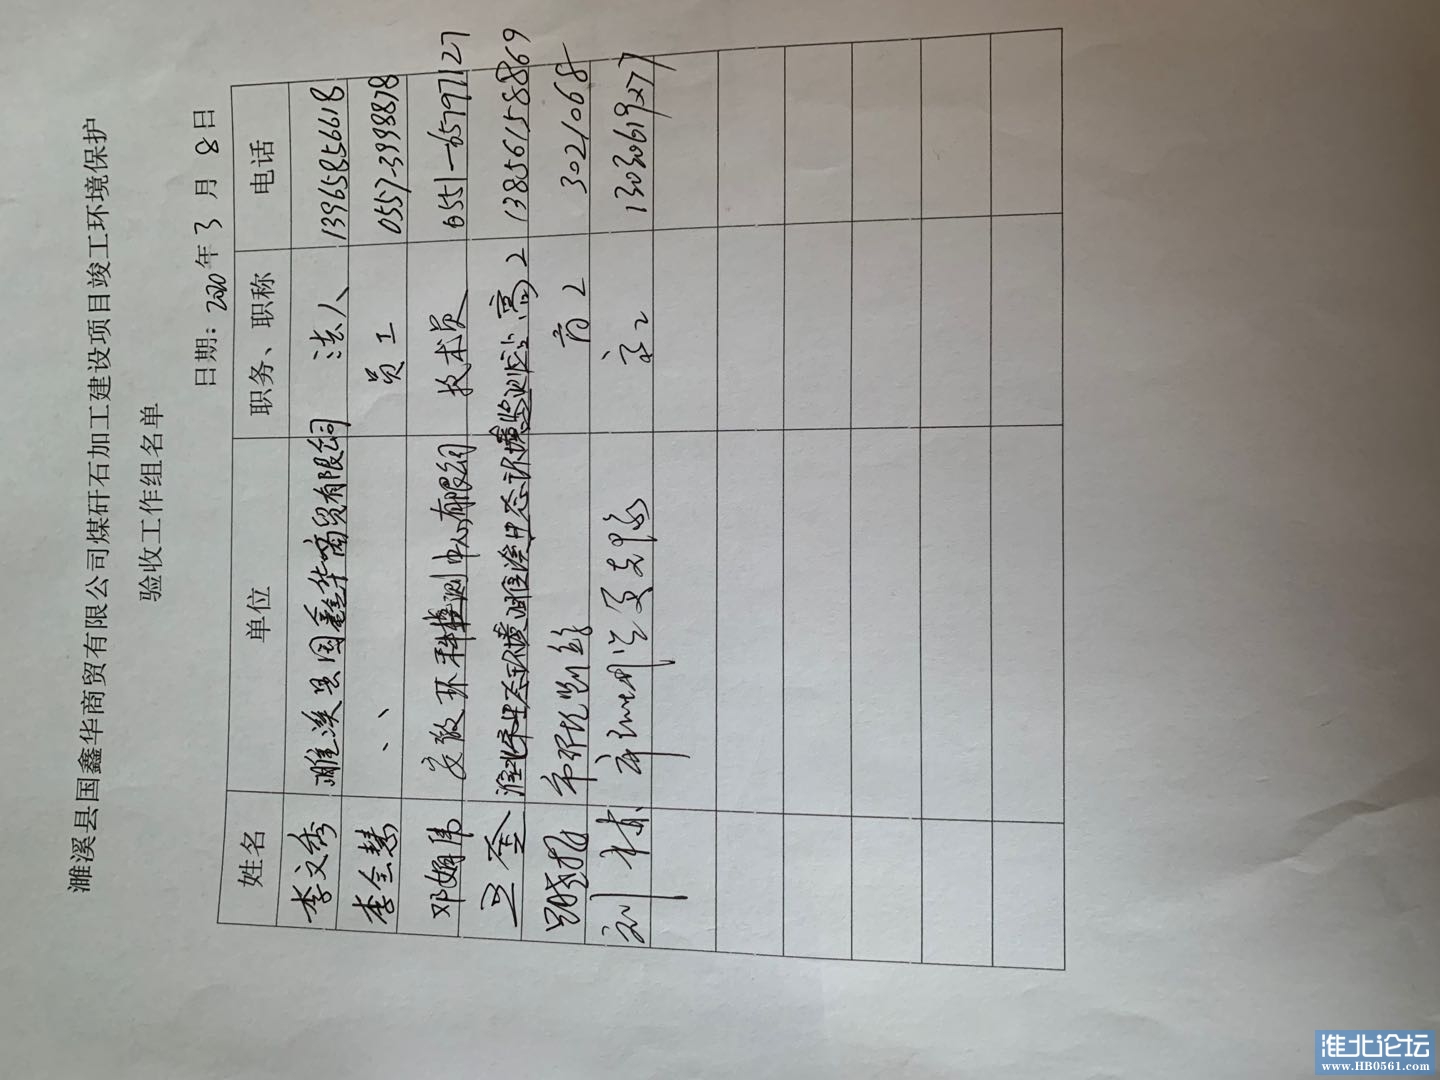 濉溪县国鑫华商贸有限公司煤矸石加工建设项目竣工环境保护
验收工作组名单
日期：2020年3月8日
姓名 单位 职务、职称 电话
李文秀 濉溪县国鑫华商贸有限公司 法人 13965856618
李全慧 、、 员工 0557-3998878
邓娟伟 安徽环科检测中心有限公司 技术员 0551-65797127
淮北市生态环境 濉溪生态环境监测站 高工 13856158869
高工 3021068
高工
淮北论坛
www.HB0561.com